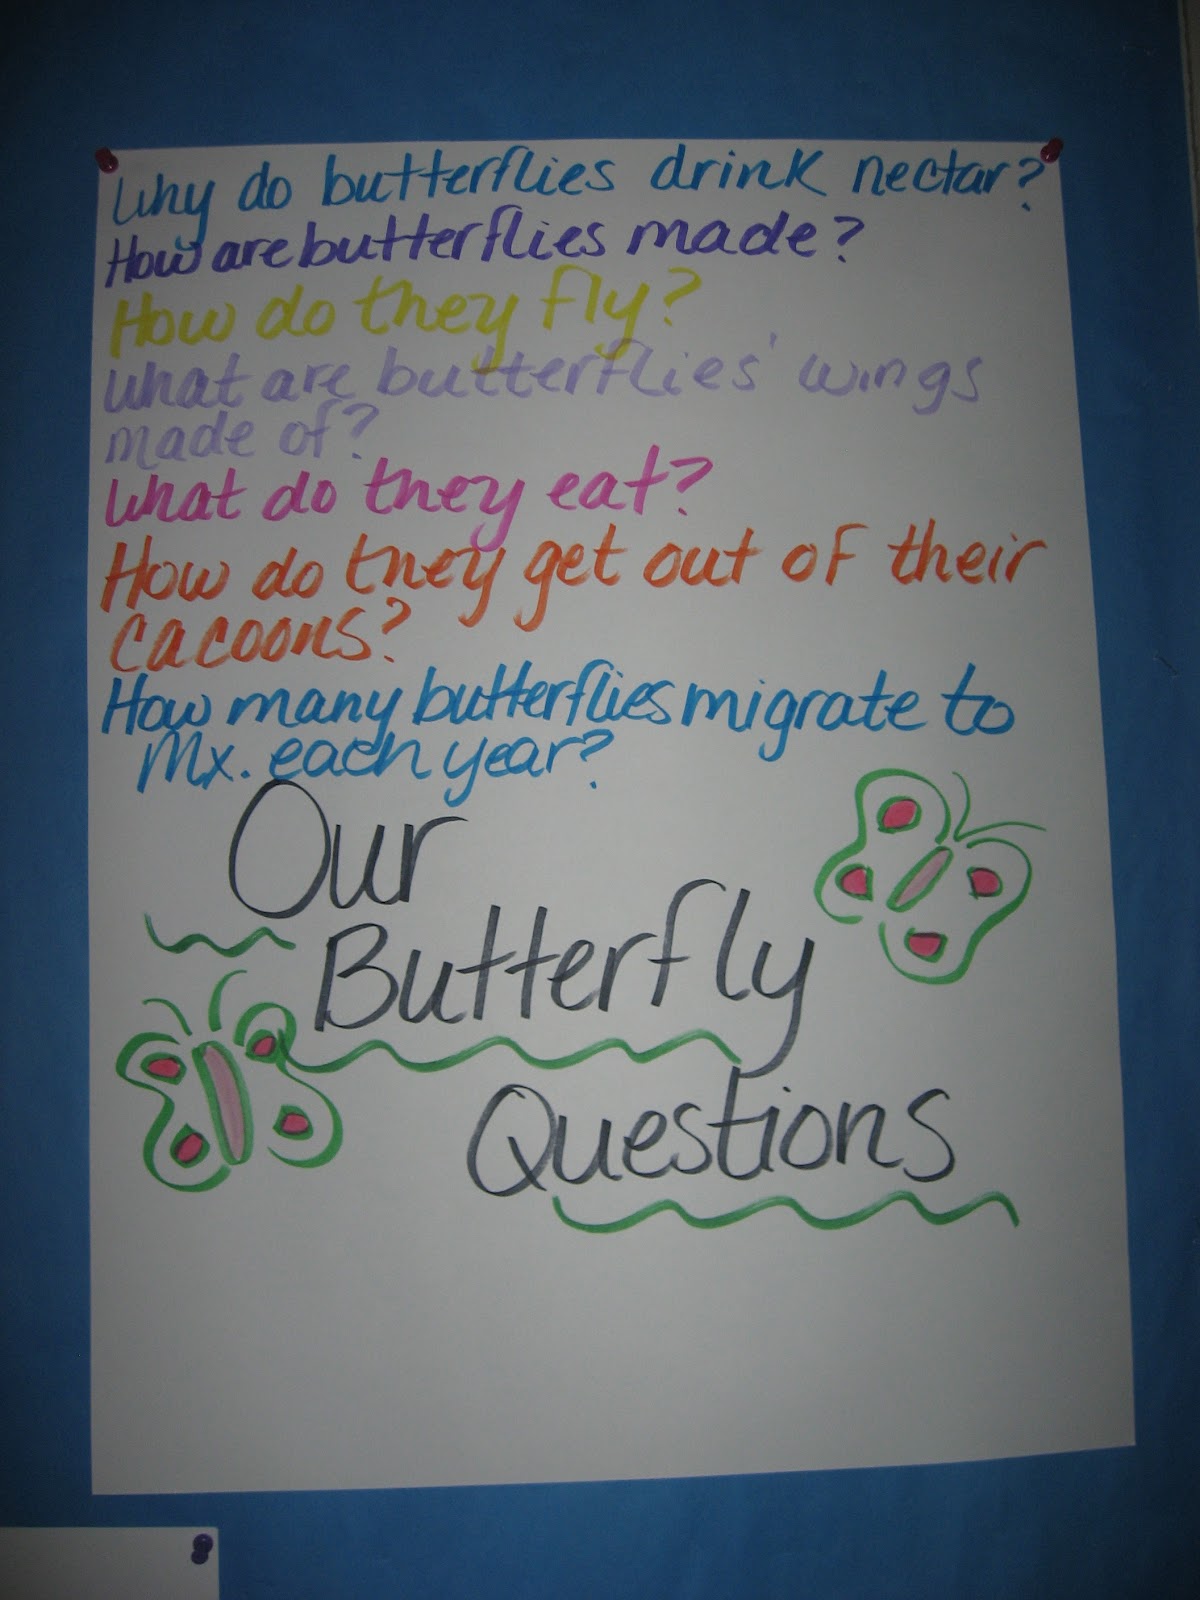 Why do butterflies drink nectar?
How are butterflies made?
How do they fly?
What are butterflies' wings
made of?
What do they eat?
How do they get out of their
cacoons?
How many butterflies migrate to
Mx. each year?
Our
Butterfly
Questions